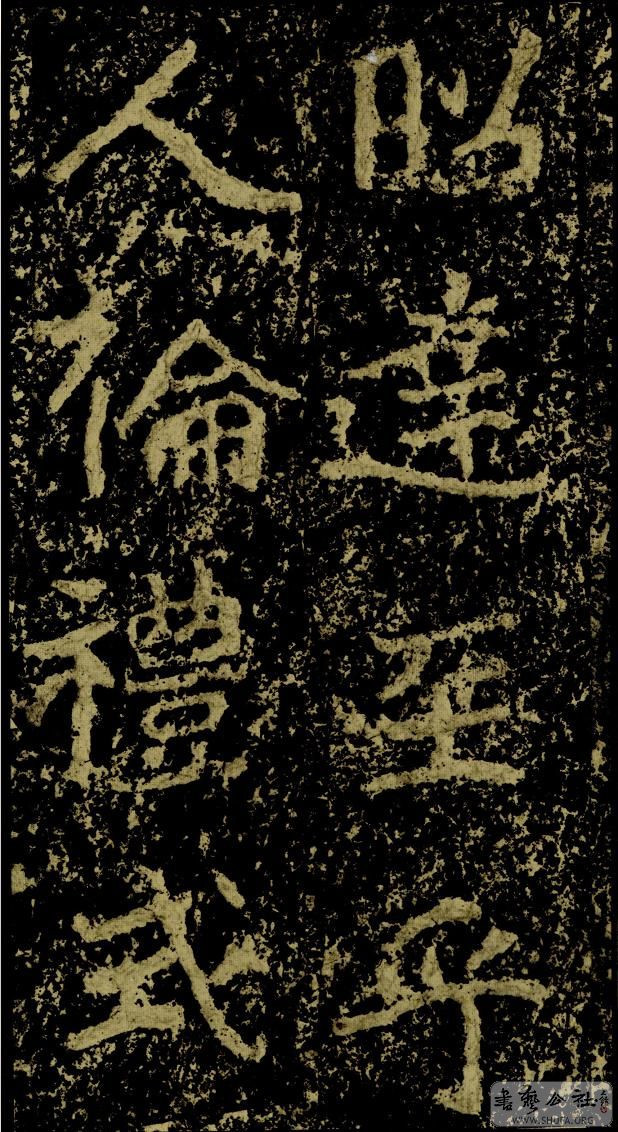 昭達至乎
人倫禮式
書藝公社
WWW.SHUFA.ORG